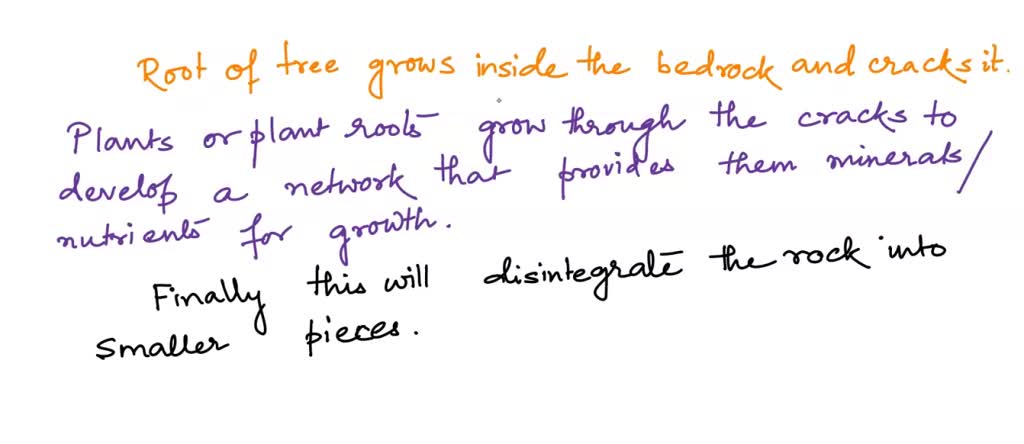 Root of tree grows inside the bedrock and cracks it.
Plants or plant roots grow through the cracks to
develop a network that provides them minerals/
nutrients for growth.
Finally this will disintegrate the rock into
smaller pieces.